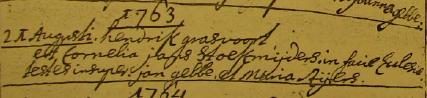 joanna gelbe.
1763
21 Augusti. hendrik grasvoort
et Cornelia jans stoksnijders. in facie Eclesiæ
testes insuper. jan gelbe. et Maria
1764